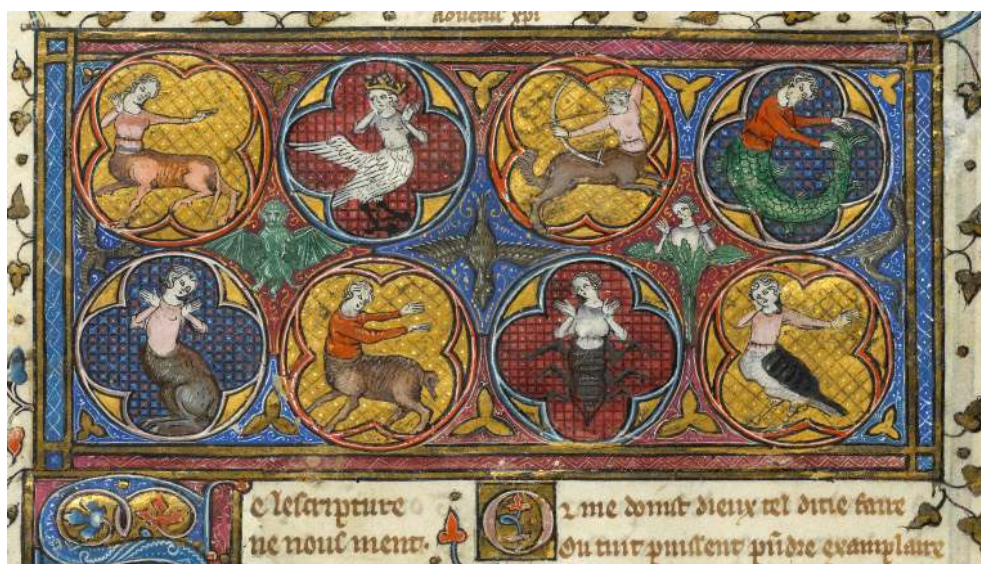 xpi
Se lescripture
ne nous ment.
Or me doint dieux tel ditie faire
Ou tuit puissent pñdre examplaire